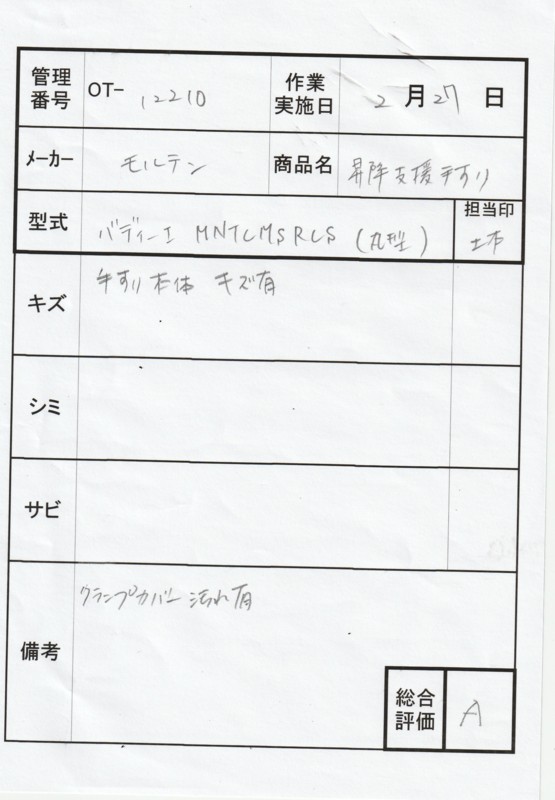 管理番号 OT- 12210 作業実施日 2月27日
メーカー モルテン 商品名 昇降支援手すり
型式 バディーI MNTLMSRLS (丸型) 担当印
キズ 手すり本体 キズ有
シミ
サビ
備考 クランプカバー 汚れ有
総合評価 A